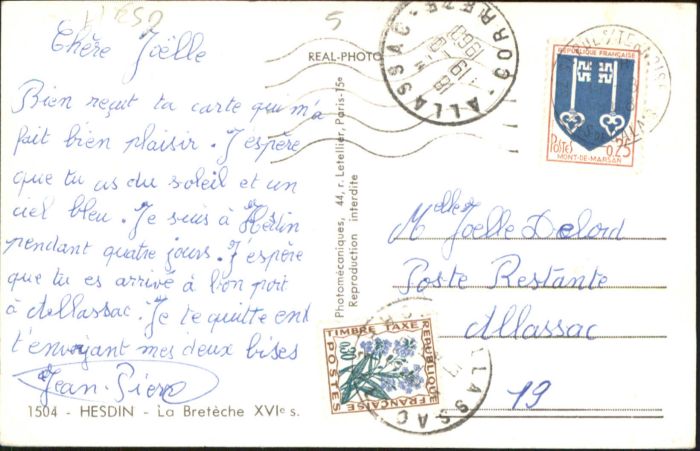 Chère Joëlle
Bien reçut ta carte qui m'a
fait bien plaisir. J'espère
que tu as du soleil et un
ciel bleu. Je suis à Hesdin
pendant quatre jours. J'espère
que tu es arrivé à bon port
à Allassac. Je te quitte en
t'envoyant mes deux bises
Jean-Pierre
1504 - HESDIN - La Bretèche XVIe s.
5
REAL-PHOTO
Photomécaniques, 44, r. Letellier, Paris-15e
Reproduction interdite
ALLASSAC
CORREZE
RÉPUBLIQUE FRANÇAISE
POSTES 0,25
MONT-DE-MARSAN
Melle Joëlle Delord
Poste Restante
Allassac
19
TIMBRE TAXE
REPUBLIQUE
FRANÇAISE
POSTES
ALLASSAC